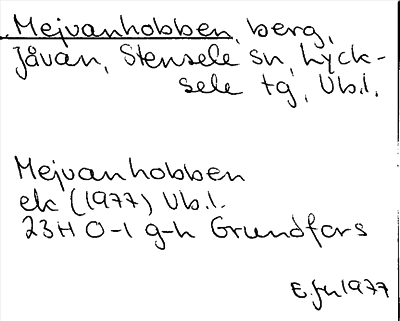 Mejvanhobben, berg,
Jåvan, Stensele sn, Lyck-
sele tg, Vb.l.
Mejvanhobben
ek (1977) Vb.l.
23H 0-1 g-h Grundfors
1977